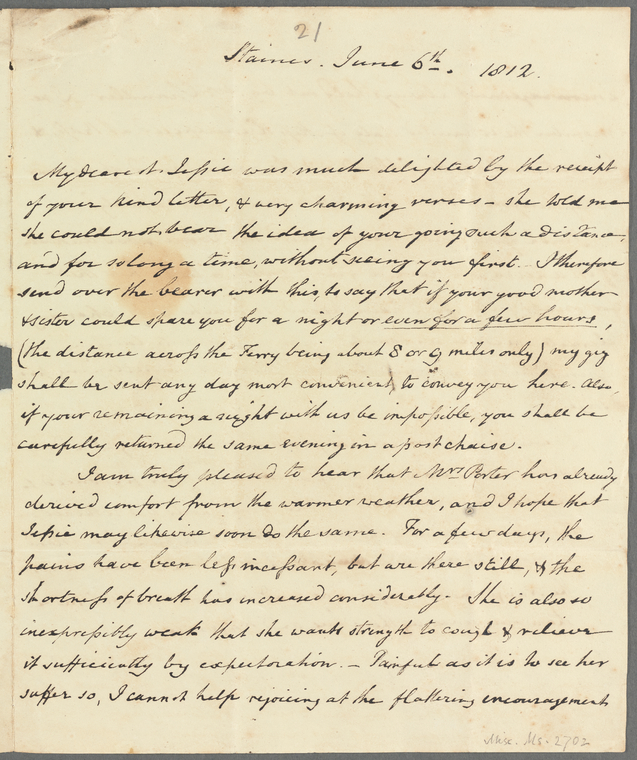 21
Staines. June 6th. 1812.
My dearest Jessie was much delighted by the receipt
of your kind letter, & very charming verses – she told me
she could not bear the idea of your going such a distance,
and for so long a time, without seeing you first. I therefore
send over the bearer with this, to say that if your good mother
& sister could spare you for a night or even for a few hours,
(the distance across the Ferry being about 8 or 9 miles only) my gig
shall be sent any day most convenient, to convey you here. Also,
if your remaining a night with us be impossible, you shall be
carefully returned the same evening in a post chaise.
I am truly pleased to hear that Mrs Porter has already
derived comfort from the warmer weather, and I hope that
Jessie may likewise soon do the same. For a few days, the
pains have been less incessant, but are there still, & the
shortness of breath has increased considerably. She is also so
inexpressibly weak that she wants strength to cough & relieve
it sufficiently by expectoration. – Painful as it is to see her
suffer so, I cannot help rejoicing at the flattering encouragements
Misc. Ms. 2702